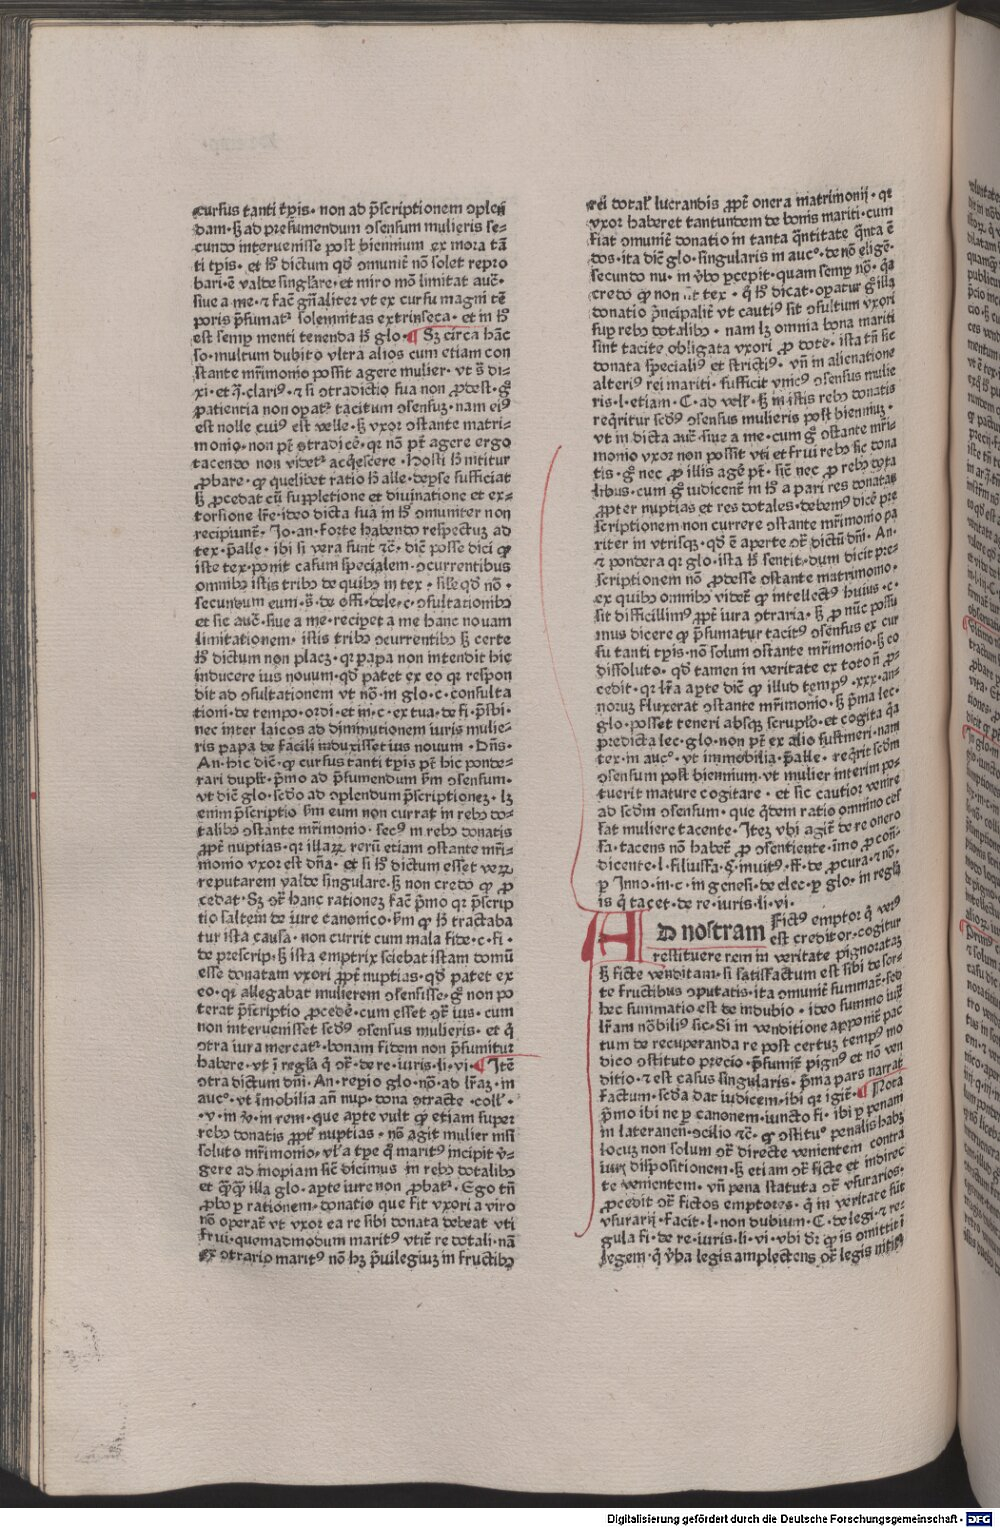 cursus tanti tp̄is · non ad p̄scriptionem ɔplen
dam · ꝫ ad presumendum ɔsensum mulieris se-
cundo interuenisse post biennium ex mora tā
ti tp̄is · et hͦ dictum qđ ɔmunit̄ nō solet repro
bari · ē valde sing̃lare · et miro mō limitat auc̄ ·
siue a me · ⁊ fac̄ gñaliter vt ex cursu magni tē
poris p̄sumat᷑ solemnitas extrinseca · et in hͦ
est semꝑ menti tenenda hͦ glo · ¶ Sꝫ circa hāc
so · multum dubito vltra alios cum etiam con
stante mr̄imonio possit agere mulier · vt s̄ di-
xi · et q̄ · clari⁹ · ⁊ si ɔtradictio sua non ꝓdest · g̊
patientia non oꝑat᷑ tacitum ɔsensuꝫ · nam ei⁹
est nolle cui⁹ est velle · ꝫ vxor ɔstante matri-
monio · non pt̄ ɔtradicē · qr nō pt̄ agere ergo
tacendo non videt᷑ acq̄escere · Hosti hͦ nititur
ꝓbare · ꝙ quelibet ratio hͦ alle · deꝑse sufficiat
ꝫ ꝓcedat cū suppletione et diuinatione et ex-
torsione lr̄e · ideo dicta sua in hͦ ɔmuniter non
recipiunt᷑ · Jo · an · forte habendo respectuꝫ ad
tex · p̄alle · ibi si vera sunt ⁊c̄ · dic̄ posse dici ꝙ
iste tex · ponit casum specialem · ɔcurrentibus
omnibꝫ istis tribꝫ de quibꝫ in tex · sil̄e qđ nō ·
secundum eum · s̄ · de offi · dele · c · ɔsultationibꝫ
et sic auc̄ · siue a me · reciꝑet a me hanc nouam
limitationem · istis tribꝫ ɔcurrentibꝫ ꝫ certe
hͦ dictum non placꝫ · qr papa non intendit hic
inducere ius nouum · qđ patet ex eo qr respon
dit ad ɔsultationem vt nō · in glo · c · consulta
tioni · de tempo · ordi · et in · c · ex tua · de fi · p̄sbi ·
nec inter laicos ad diminutionem iuris mulie-
ris papa de facili induxisset ius nouum · Dn̄s ·
An · hic dic̄ · ꝙ cursus tanti tp̄is pt̄ hic ponde-
rari dupl̄r · p̄mo ad p̄sumendum ẜm ɔsensum ·
vt dic̄ glo · scđo ad ɔplendum p̄scriptioneꝫ · lꝫ
enim p̄scriptio ẜm eum non currat in rebꝫ do-
talibꝫ ɔstante mr̄imonio · sec⁹ in rebꝫ donatis
ꝓpt̄ nuptias · qr illaꝝ rerū etiam ɔstante mr̄i-
monio vxor est dn̄a · et si hͦ dictum esset veꝝ
reputarem valde singulare · ꝫ non credo ꝙ ꝓ
cedat · Sꝫ ɔt̄ hanc rationeꝫ fac̄ p̄mo qr p̄scrip
tio saltem de iure canonico · ẜm ꝙ hͦ tractaba
tur ista causa · non currit cum mala fide · c · fi ·
de prescrip · ꝫ ista emptrix sciebat istam domū
esse donatam vxori ꝓpt̄ nuptias · qđ patet ex
eo · qr allegabat mulierem ɔsensisse · g̊ non po
terat p̄scriptio ꝓcedē · cum esset ɔt̄ ius · cum
non interuenisset scđs ɔsensus mulieris · et q̄
ɔtra iura mercat᷑ · bonam fidem non p̄sumitur
habere · vt ī regl̄a q̄ ɔt̄ · de re · iuris · li · vi · ¶ Itē
ɔtra dictum dn̄i · An · reꝑio glo · nō · ad lr̄aꝫ · in
auc̊ · vt īmobilia an̄ nup · dona ɔtracte · coll ·
· v · in ꝟ · in rem · que aꝑte vult ꝙ etiam super
rebꝫ donatis ꝓpt̄ nuptias · nō agit mulier nisi
soluto mr̄imonio · vl̄ a tꝑe q̄ marit⁹ incipit ꝟ-
gere ad inopiam sic̄ dicimus in rebꝫ dotalibꝫ
et q̄ꝙ illa glo · aꝑte iure non ꝓbat᷑ · Ego tn̄
ꝓbo ꝑ rationem · donatio que fit vxori a viro
nō operat᷑ vt vxor ea re sibi donata debeat vti
frui · quemadmodum marit⁹ vtit᷑ re dotali · nā
ex ɔtrario marit⁹ nō hꝫ p̄uilegiuꝫ in fructibꝫ
rei dotal᷑ lucrandis ꝓpt̄ onera matrimonij · qr
vxor haberet tantundem de bonis mariti · cum
fiat ɔmunit̄ donatio in tanta q̄ntitate q̄nta ē
dos · ita dic̄ glo · singularis in auc̊ · de nō eligē ·
secundo nu · in ꝟbo ꝑcepit · quam semꝑ nō · q̄a
credo ꝙ non sit tex · q̄ hͦ dicat · oꝑatur g̊ illa
donatio p̄ncipalit̄ vt cauti⁹ sit ɔsultum vxori
suꝑ rebꝫ dotalibꝫ · nam lꝫ omnia bona mariti
sint tacite obligata vxori ꝓ dote · ista tn̄ sic
donata speciali⁹ et stricti⁹ · vn̄ in alienatione
alteri⁹ rei mariti · sufficit vnic⁹ ɔsensus mulie
ris · l · etiam · C · ad vell᷑ · ꝫ in istis rebꝫ donatis
req̄ritur scđs ɔsensus mulieris post bienniuꝫ ·
vt in dicta auc̄ · siue a me · cum g̊ ɔstante mr̄i-
monio vxor non possit vti et frui rebꝫ sic dona
tis · g̊ nec ꝓ illis agē pt̄ · sic̄ nec ꝓ rebꝫ dota
libus · cum g̊ iudicent᷑ in hͦ a pari res donatas
ꝓpter nuptias et res dotales · debem⁹ dicē pre
scriptionem non currere ɔstante mr̄imonio pa
riter in vtrisqꝫ · qđ ē aperte ɔt̄ dictū dn̄i · An ·
⁊ pondera qr glo · ista hͦ sentit · dum dicit pre-
scriptionem nō ꝓdesse ɔstante matrimonio ·
ex quibꝫ omnibꝫ videt᷑ ꝙ intellect⁹ huius · c ·
sit difficillim⁹ ꝓpt̄ iura ɔtraria · ꝫ ꝓ nūc possu
mus dicere ꝙ p̄sumatur tacit⁹ ɔsensus ex cur
su tanti tp̄is · nō solum ɔstante mr̄imonio · ꝫ eo
dissoluto · qđ tamen in veritate ex toto n̄ ꝓ-
cedit · qr lr̄a aꝑte dic̄ ꝙ illud temp⁹ · xxx · an-
noruꝫ fluxerat ɔstante mr̄imonio · ꝫ p̄ma lec ·
glo · posset teneri absqꝫ scrupl̄o · et cogita q̄a
predicta lec · glo · non pt̄ ex alio sustineri · nam
tex · in auc̊ · vt immobilia · p̄alle · req̄rit scđm
ɔsensum post biennium · vt mulier interim po-
tuerit mature cogitare · et sic cautior venire
ad scđm ɔsensum · que q̄dem ratio omnino ces
sat muliere tacente · Iteꝫ vbi agit᷑ de re onero
sa · tacens nō habet᷑ ꝓ ɔsentiente · imo ꝓ con̄ ·
dicente · l · filiusfa · §· inuit⁹ · ff · de ꝓcura · ⁊ nō ·
ꝑ Inno · in · c · in genesi · de elec · ꝑ glo · in regl̄a
is q̄ tacet · de re · iuris · li · vi ·
AD nostram Fict⁹ emptor q̄ ver⁹
est creditor · cogitur
restituere rem in veritate pignorataꝫ
ꝫ ficte venditam · si satisfactum est sibi de sor-
te fructibus ɔputatis · ita ɔmunit̄ summat᷑ · sed
hec summatio est de indubio · ideo summo iux̄
lr̄am nōbili⁹ sic · Si in venditione apponit᷑ pac
tum de recuperanda re post certuꝫ temp⁹ mo
dico ɔstituto precio · p̄sumit᷑ pign⁹ et nō ven
ditio · ⁊ est casus singularis · p̄ma pars narrat
factum · scđa dat iudicem · ibi qr igit᷑ · ¶ Nota
p̄mo ibi ne ꝑ canonem · iuncto fi · ibi ꝑ penam
in lateranen̄ · ɔcilio ⁊c̄ · ꝙ ɔstituͦ penalis habꝫ
locuꝫ non solum ɔt̄ directe venientem contra
iuris dispositionem · ꝫ etiam ɔt̄ ficte et indirec
te venientem · vn̄ pena statuta ɔt̄ vsurarios ·
ꝓcedit ɔt̄ fictos emptores · q̄ in veritate sūt
vsurarij · facit · l · non dubium · C · de legi · ⁊ re-
gula fi · de re · iuris · li · vi · vbi dr̄ ꝙ is omittit ī
legem · q̄ ꝟba legis amplectens ɔt̄ legis nitit᷑
Digitalisierung gefördert durch die Deutsche Forschungsgemeinschaft - DFG